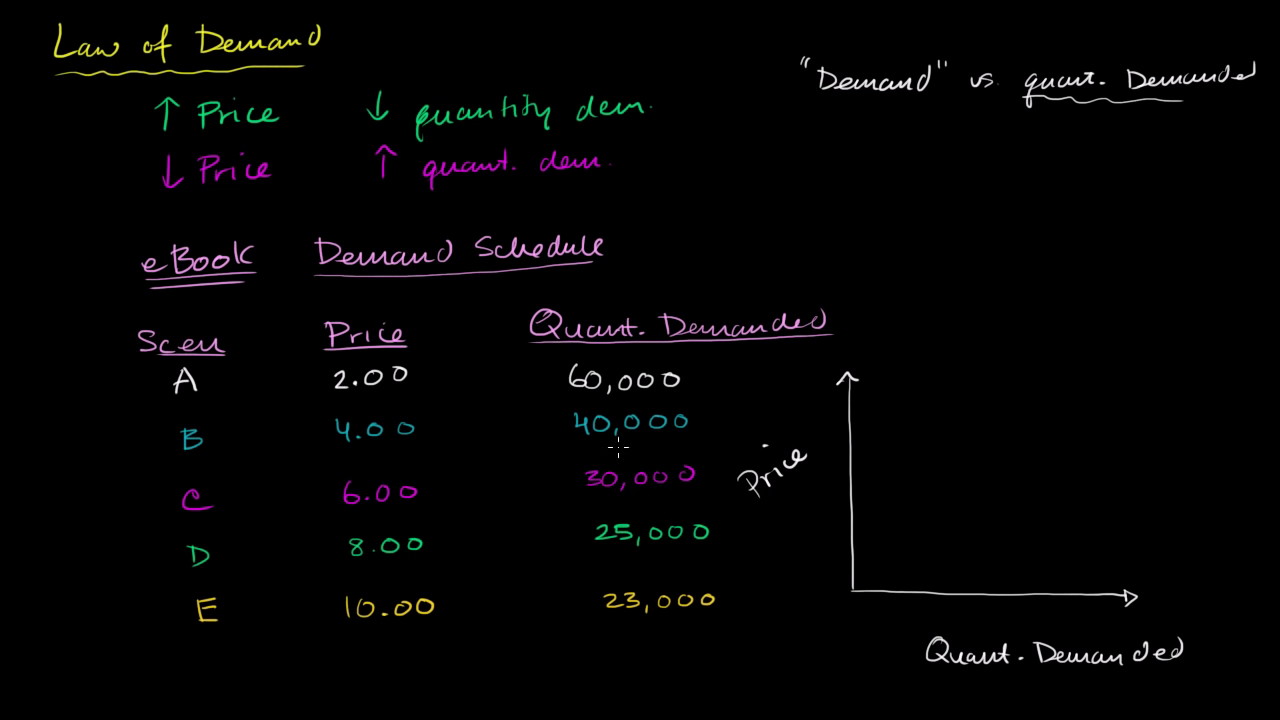 Law of Demand
"Demand" vs. quant. Demanded
↑ Price ↓ quantity dem.
↓ Price ↑ quant. dem.
eBook Demand Schedule
Scen Price Quant. Demanded
A 2.00 60,000
B 4.00 40,000
C 6.00 30,000
D 8.00 25,000
E 10.00 23,000
Price
Quant. Demanded